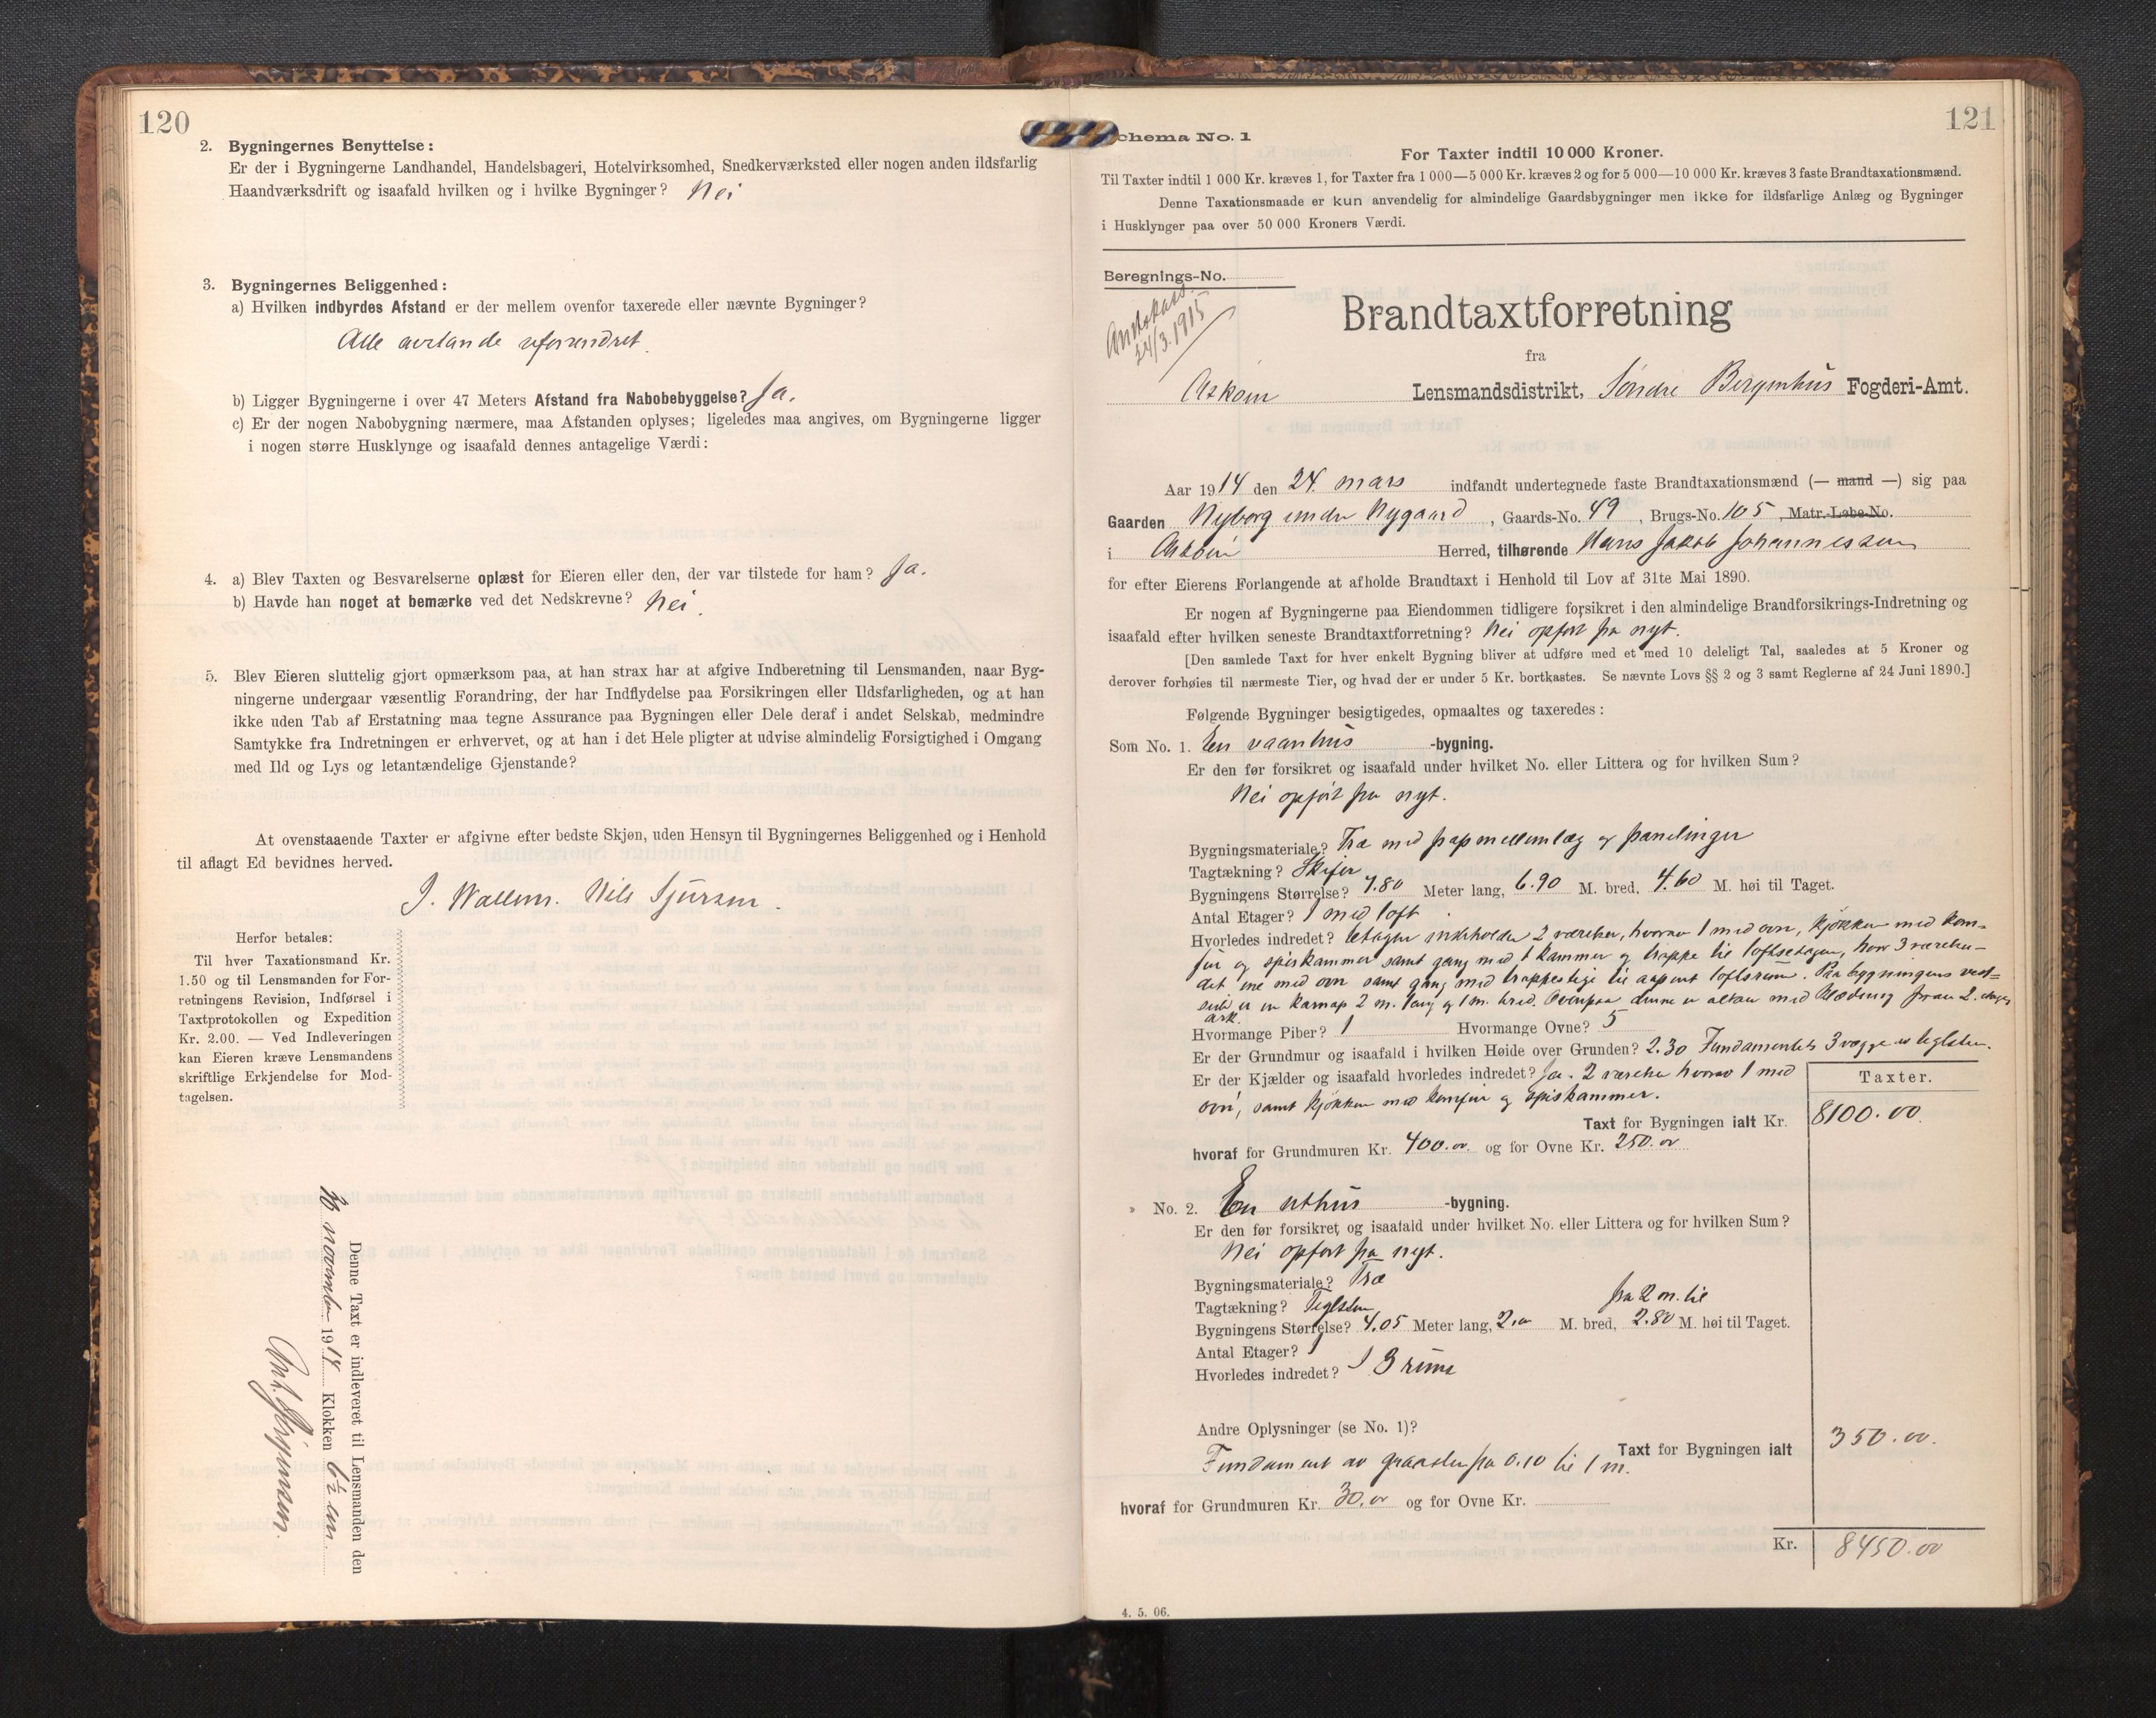 120
2. Bygningernes Benyttelse:
Er der i Bygningerne Landhandel, Handelsbageri, Hotelvirksomhed, Snedkerværksted eller nogen anden ildsfarlig
Haandværksdrift og isaafald hvilken og i hvilke Bygninger? Nei
3. Bygningernes Beliggenhed:
a) Hvilken indbyrdes Afstand er der mellem ovenfor taxerede eller nævnte Bygninger?
Alle avstande uforandret.
b) Ligger Bygningerne i over 47 Meters Afstand fra Nabobebyggelse? Ja.
c) Er der nogen Nabobygning nærmere, maa Afstanden oplyses; ligeledes maa angives, om Bygningerne ligger
i nogen større Husklynge og isaafald dennes antagelige Værdi:
4. a) Blev Taxten og Besvarelserne oplæst for Eieren eller den, der var tilstede for ham? Ja.
b) Havde han noget at bemærke ved det Nedskrevne? Nei.
5. Blev Eieren sluttelig gjort opmærksom paa, at han strax har at afgive Indberetning til Lensmanden, naar Byg-
ningerne undergaar væsentlig Forandring, der har Indflydelse paa Forsikringen eller Ildsfarligheden, og at han
ikke uden Tab af Erstatning maa tegne Assurance paa Bygningen eller Dele deraf i andet Selskab, medmindre
Samtykke fra Indretningen er erhvervet, og at han i det Hele pligter at udvise almindelig Forsigtighed i Omgang
med Ild og Lys og letantændelige Gjenstande?
At ovenstaaende Taxter er afgivne efter bedste Skjøn, uden Hensyn til Bygningernes Beliggenhed og i Henhold
til aflagt Ed bevidnes herved.
J. Wallem. Nils Sjursen.
Herfor betales:
Til hver Taxationsmand Kr.
1.50 og til Lensmanden for For-
retningens Revision, Indførsel i
Taxtprotokollen og Expedition
Kr. 2.00. — Ved Indleveringen
kan Eieren kræve Lensmandens
skriftlige Erkjendelse for Mod-
tagelsen.
Denne Taxt er indleveret til Lensmanden den
november 1914 Klokken 6½ em.
121
Schema No. 1
For Taxter indtil 10 000 Kroner.
Til Taxter indtil 1 000 Kr. kræves 1, for Taxter fra 1 000—5 000 Kr. kræves 2 og for 5 000—10 000 Kr. kræves 3 faste Brandtaxationsmænd.
Denne Taxationsmaade er kun anvendelig for almindelige Gaardsbygninger men ikke for ildsfarlige Anlæg og Bygninger
i Husklynger paa over 50 000 Kroners Værdi.
Beregnings-No.
24/3.1915
Brandtaxtforretning
fra
Askøin Lensmandsdistrikt, Söndre Bergenhus Fogderi-Amt.
Aar 1914 den 24. mars indfandt undertegnede faste Brandtaxationsmænd (— mand —) sig paa
Gaarden Nyborg under Nygaard, Gaards-No. 49, Brugs-No. 105, Matr.-Løbe-No.
i Askøin Herred, tilhørende Hans Jakob Johannessen
for efter Eierens Forlangende at afholde Brandtaxt i Henhold til Lov af 31te Mai 1890.
Er nogen af Bygningerne paa Eiendommen tidligere forsikret i den almindelige Brandforsikrings-Indretning og
isaafald efter hvilken seneste Brandtaxtforretning? Nei opført fra nyt.
[Den samlede Taxt for hver enkelt Bygning bliver at udføre med et med 10 deleligt Tal, saaledes at 5 Kroner og
derover forhøies til nærmeste Tier, og hvad der er under 5 Kr. bortkastes. Se nævnte Lovs §§ 2 og 3 samt Reglerne af 24 Juni 1890.]
Følgende Bygninger besigtigedes, opmaaltes og taxeredes:
Som No. 1. En vaanhus -bygning.
Er den før forsikret og isaafald under hvilket No. eller Littera og for hvilken Sum?
Nei opført fra nyt.
Bygningsmateriale? Træ med papmellemlæg og panelinger
Tagtækning? Skifer
Bygningens Størrelse? 7.80 Meter lang, 6.90 M. bred, 4.60 M. høi til Taget.
Antal Etager? 1 med loft
Hvorledes indredet? Etagen indeholder 2 værelser, hvorav 1 med ovn, kjøkken med kom-
für og spiskammer samt gang med 1 kammer og trappe til loftsetagen, hvor 3 værelser
det ene med ovn samt gang med trappestige til aapent loftsrum. Paa bygningens vest-
side er en karnap 2 m. lang og 1 m. bred. Ovenpaa denne er altan med klædning foran 2. etages
ark.
Hvormange Piber? 1 Hvormange Ovne? 5
Er der Grundmur og isaafald i hvilken Høide over Grunden? 2.30 Fundamentets 3 vægge er teglsten.
Er der Kjælder og isaafald hvorledes indredet? Ja. 2 værelser hvorav 1 med
ovn, samt kjøkken med komfür og spiskammer.
Taxter.
Taxt for Bygningen ialt Kr. 8100.00
hvoraf for Grundmuren Kr. 400.00 og for Ovne Kr. 250.00
» No. 2. En uthus -bygning.
Er den før forsikret og isaafald under hvilket No. eller Littera og for hvilken Sum?
Nei opført fra nyt.
Bygningsmateriale? Træ
Tagtækning? Teglsten
fra 2 m. til
Bygningens Størrelse? 4.05 Meter lang, 2.00 M. bred, 2.80 M. høi til Taget.
Antal Etager? 1
Hvorledes indredet? I 3 rum
Andre Oplysninger (se No. 1)?
Fundament av graasten fra 0.10 til 1 m.
Taxt for Bygningen ialt 350.00.
hvoraf for Grundmuren Kr. 30.00 og for Ovne Kr.
Kr. 8450.00
4. 5. 06.